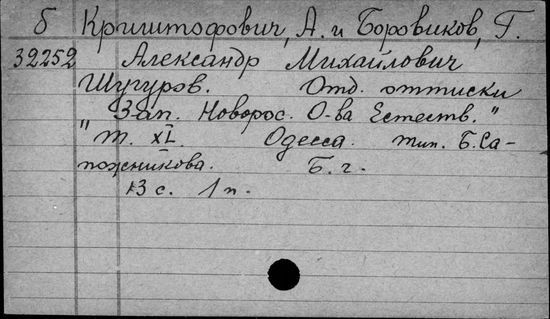 б Криштофович, А. и Боровиков, Г.
32252 Александр Михайлович
Шугуров. Отд. оттиски
"Зап. Новорос. О-ва Естеств."
т. XL. Одесса. тип. Б. Са-
пожникова. Б. г.
13 с. 1 п.